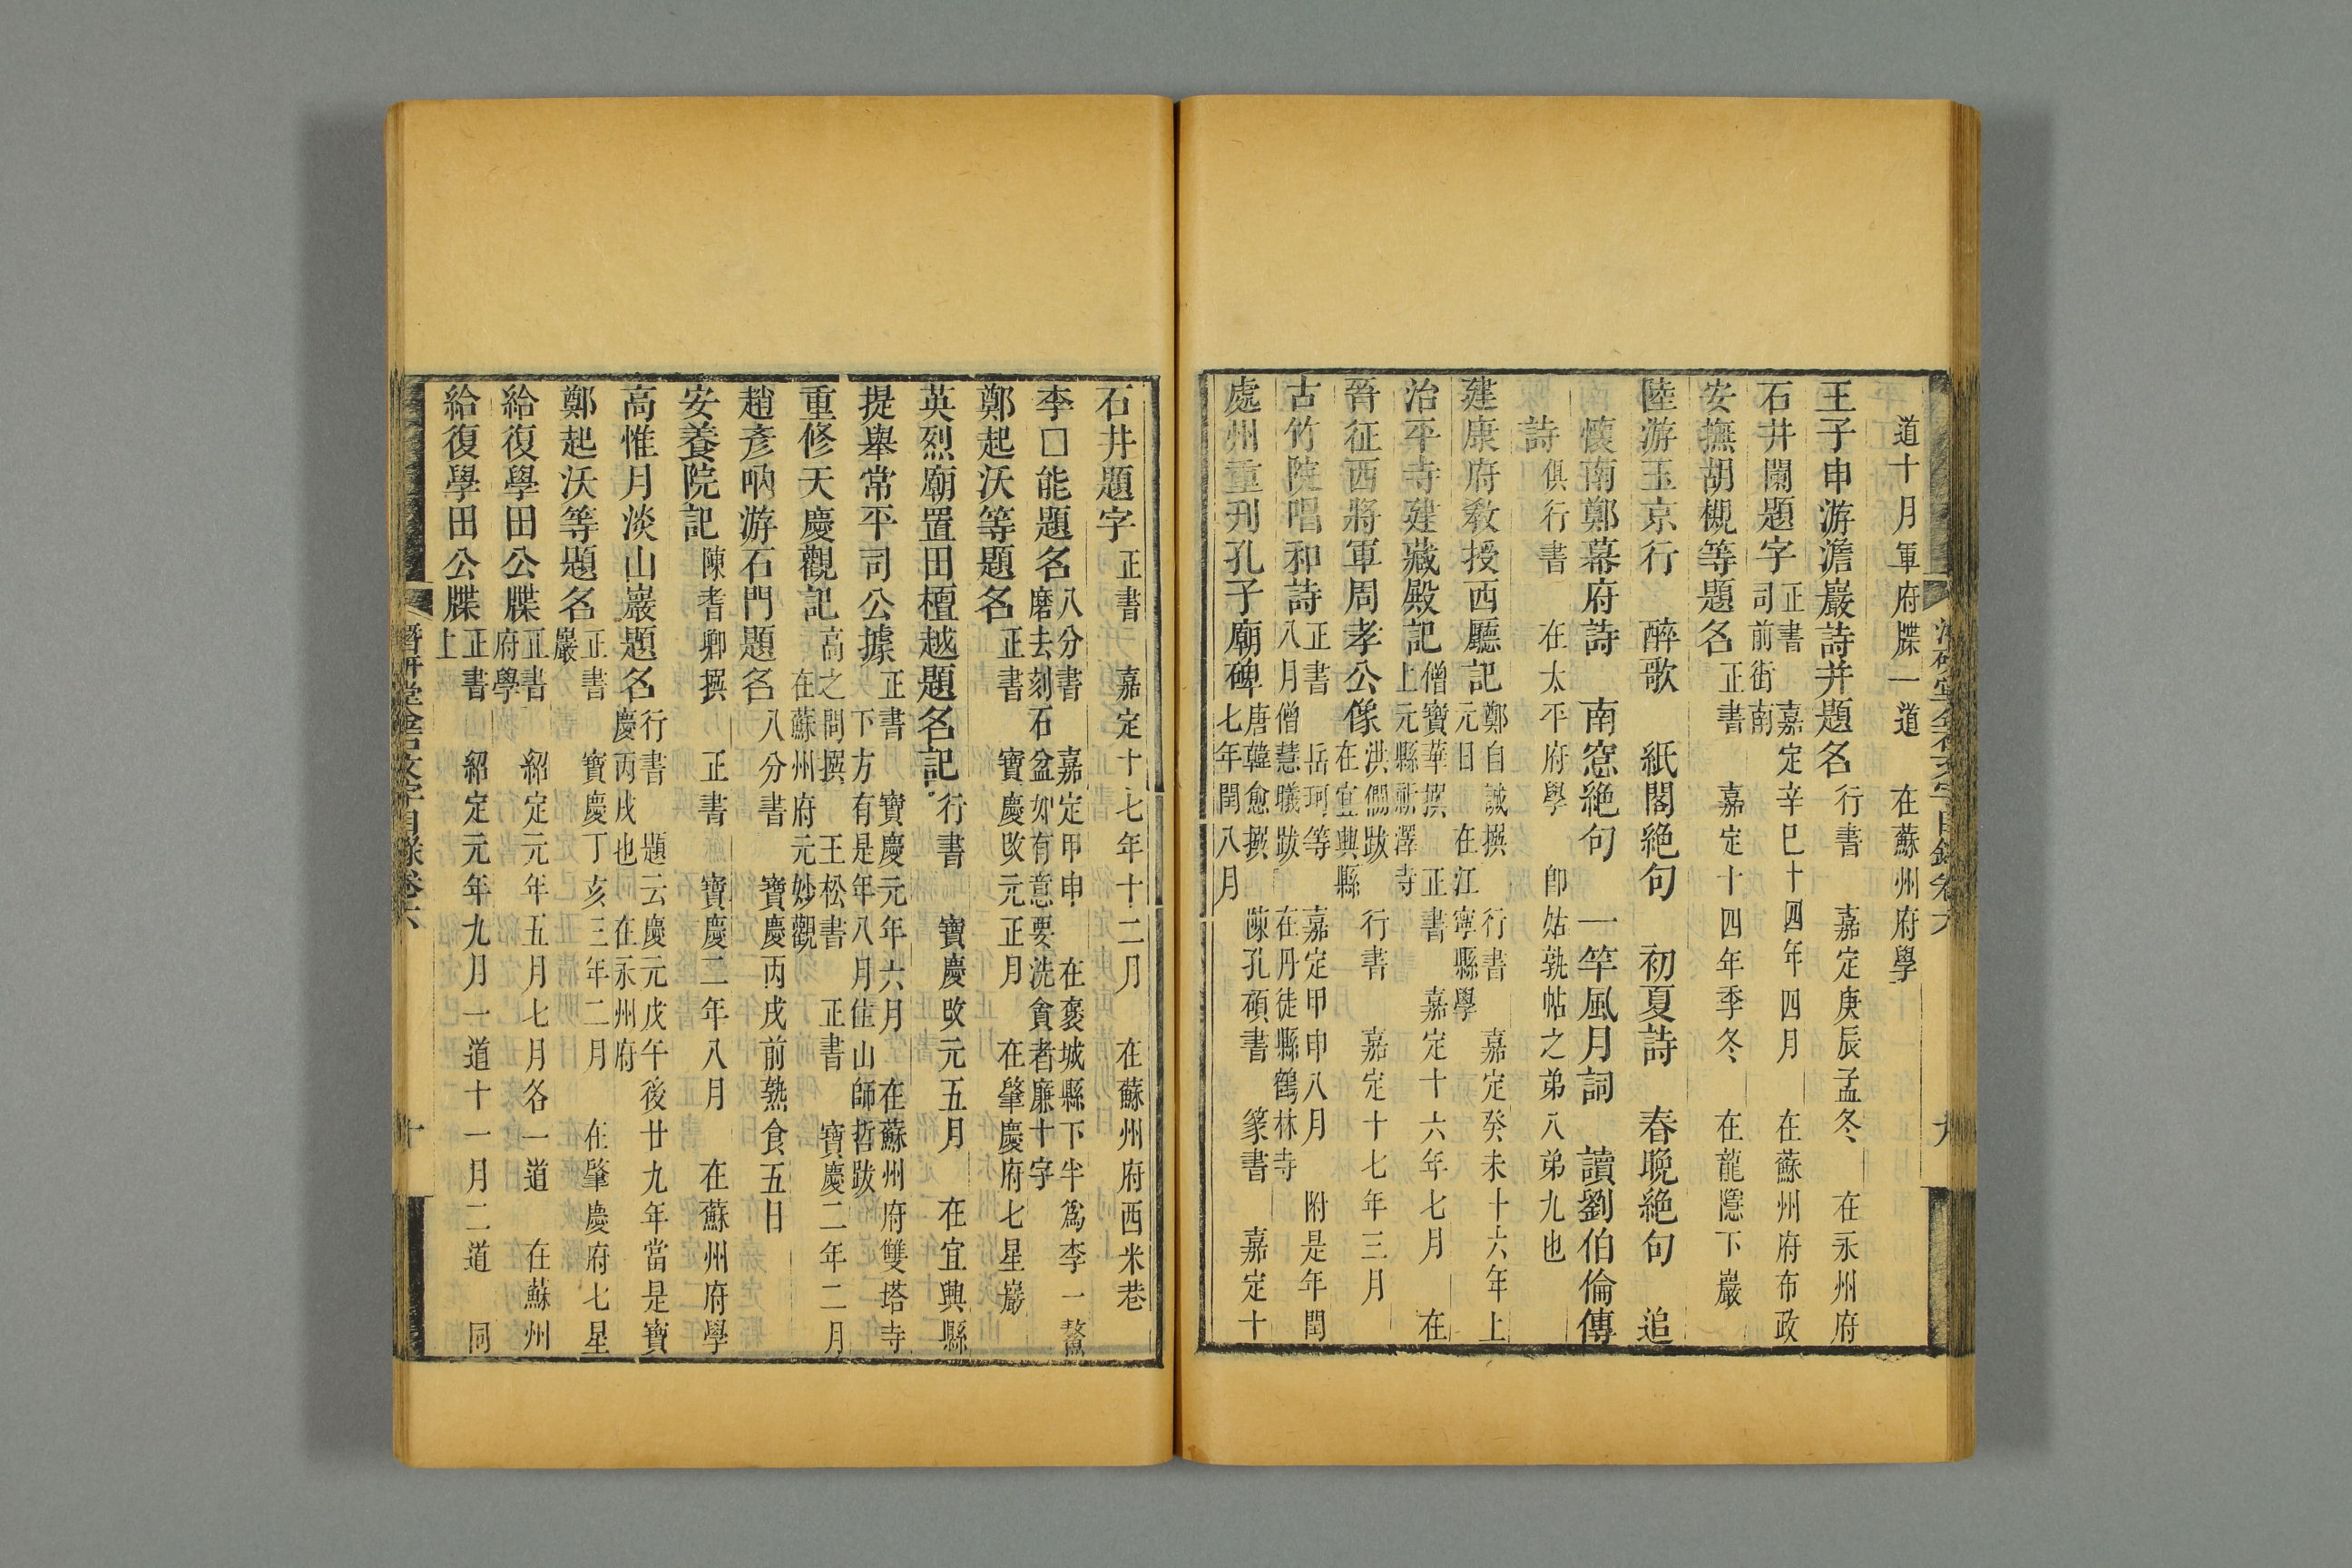 道十月軍府牒一道　在蘇州府學
王子申游澹巖詩并題名　行書　嘉定庚辰孟冬　在永州府
石井闌題字　正書　嘉定辛巳十四年四月　在蘇州府布政
司前街南
安撫胡槻等題名　正書　嘉定十四年季冬　在龍隱下巖
陸游玉京行　醉歌　紙閣絶句　初夏詩　春晚絶句　追
懷南鄭幕府詩　南窓絶句　一竿風月詞　讀劉伯倫傳
詩　俱行書　在太平府學　卽姑孰帖之弟八弟九也
建康府教授西廳記　鄭自誠撰　行書　嘉定癸未十六年上
元日　在江寧縣學
治平寺建藏殿記　僧寶華撰　正書　嘉定十六年七月　在
上元縣蘄澤寺
晉征西將軍周孝公像　洪僩跋　行書　嘉定十七年三月
在宜興縣
古竹院唱和詩　正書　岳珂等　嘉定甲申八月　附是年閏
八月僧慧曦跋　在丹徒縣鶴林寺
處州重刋孔子廟碑　唐韓愈撰　陳孔碩書　篆書　嘉定十
七年閏八月
石井題字　正書　嘉定十七年十二月　在蘇州府西米巷
李□能題名　八分書　嘉定甲申　在褒城縣下半爲李一鼇
磨去刻石盆如有意要洗貪者廉十字
鄭起沃等題名　正書　寶慶改元正月　在肇慶府七星巖
英烈廟置田檀越題名記　行書　寶慶改元五月　在宜興縣
提舉常平司公據　正書　寶慶元年六月　在蘇州府雙塔寺
下方有是年八月住山師哲跋
重修天慶觀記　高之問撰　王松書　正書　寶慶二年二月
在蘇州府元妙觀
趙彥吶游石門題名　八分書　寶慶丙戌前熟食五日
安養院記　陳耆卿撰　正書　寶慶二年八月　在蘇州府學
高惟月淡山巖題名　行書　題云慶元戊午後廿九年當是寶
慶丙戌也　在永州府
鄭起沃等題名　正書　寶慶丁亥三年二月　在肇慶府七星
巖
給復學田公牒　正書　紹定元年五月七月各一道　在蘇州
府學
給復學田公牒　正書　紹定元年九月一道十一月二道　同
上
潛研堂金石文字目錄卷六　十